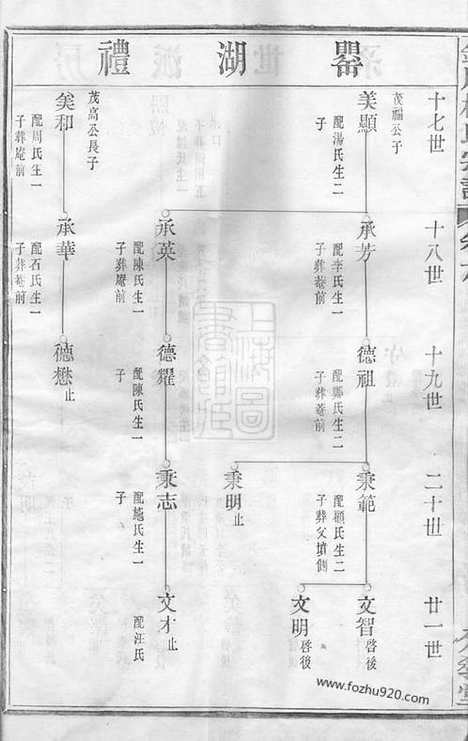 禮湖罍
十七世
十八世
十九世
二十世
廿一世
美顯
茂福公子
配湯氏生二子
承芳
配李氏生二子葬菴前
德祖
配鄭氏生二子葬菴前
秉範
配顧氏生二子葬父墳側
文智
啓後
文明
啓後
秉明
止
承英
配陳氏生一子葬庵前
德耀
配陳氏生一子
秉志
生一子
文才
止
配汪氏
美和
茂高公長子
配周氏生一子葬庵前
承華
配石氏生一子葬菴前
德懋
止
www.fozhu920.com